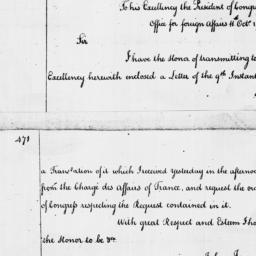 To his Excellency the President of Congr
Office for foreign Affairs 11th Octr 1
Sir
I have the Honor of transmitting to
Excellency herewith enclosed a Letter of the 9th Instant
471
a Translation of it which I received yesterday in the afternoo
from the Chargé des Affairs of France, and request the or
of Congress respecting the Request contained in it.
With great Respect and Esteem I ha
the Honor to be &c